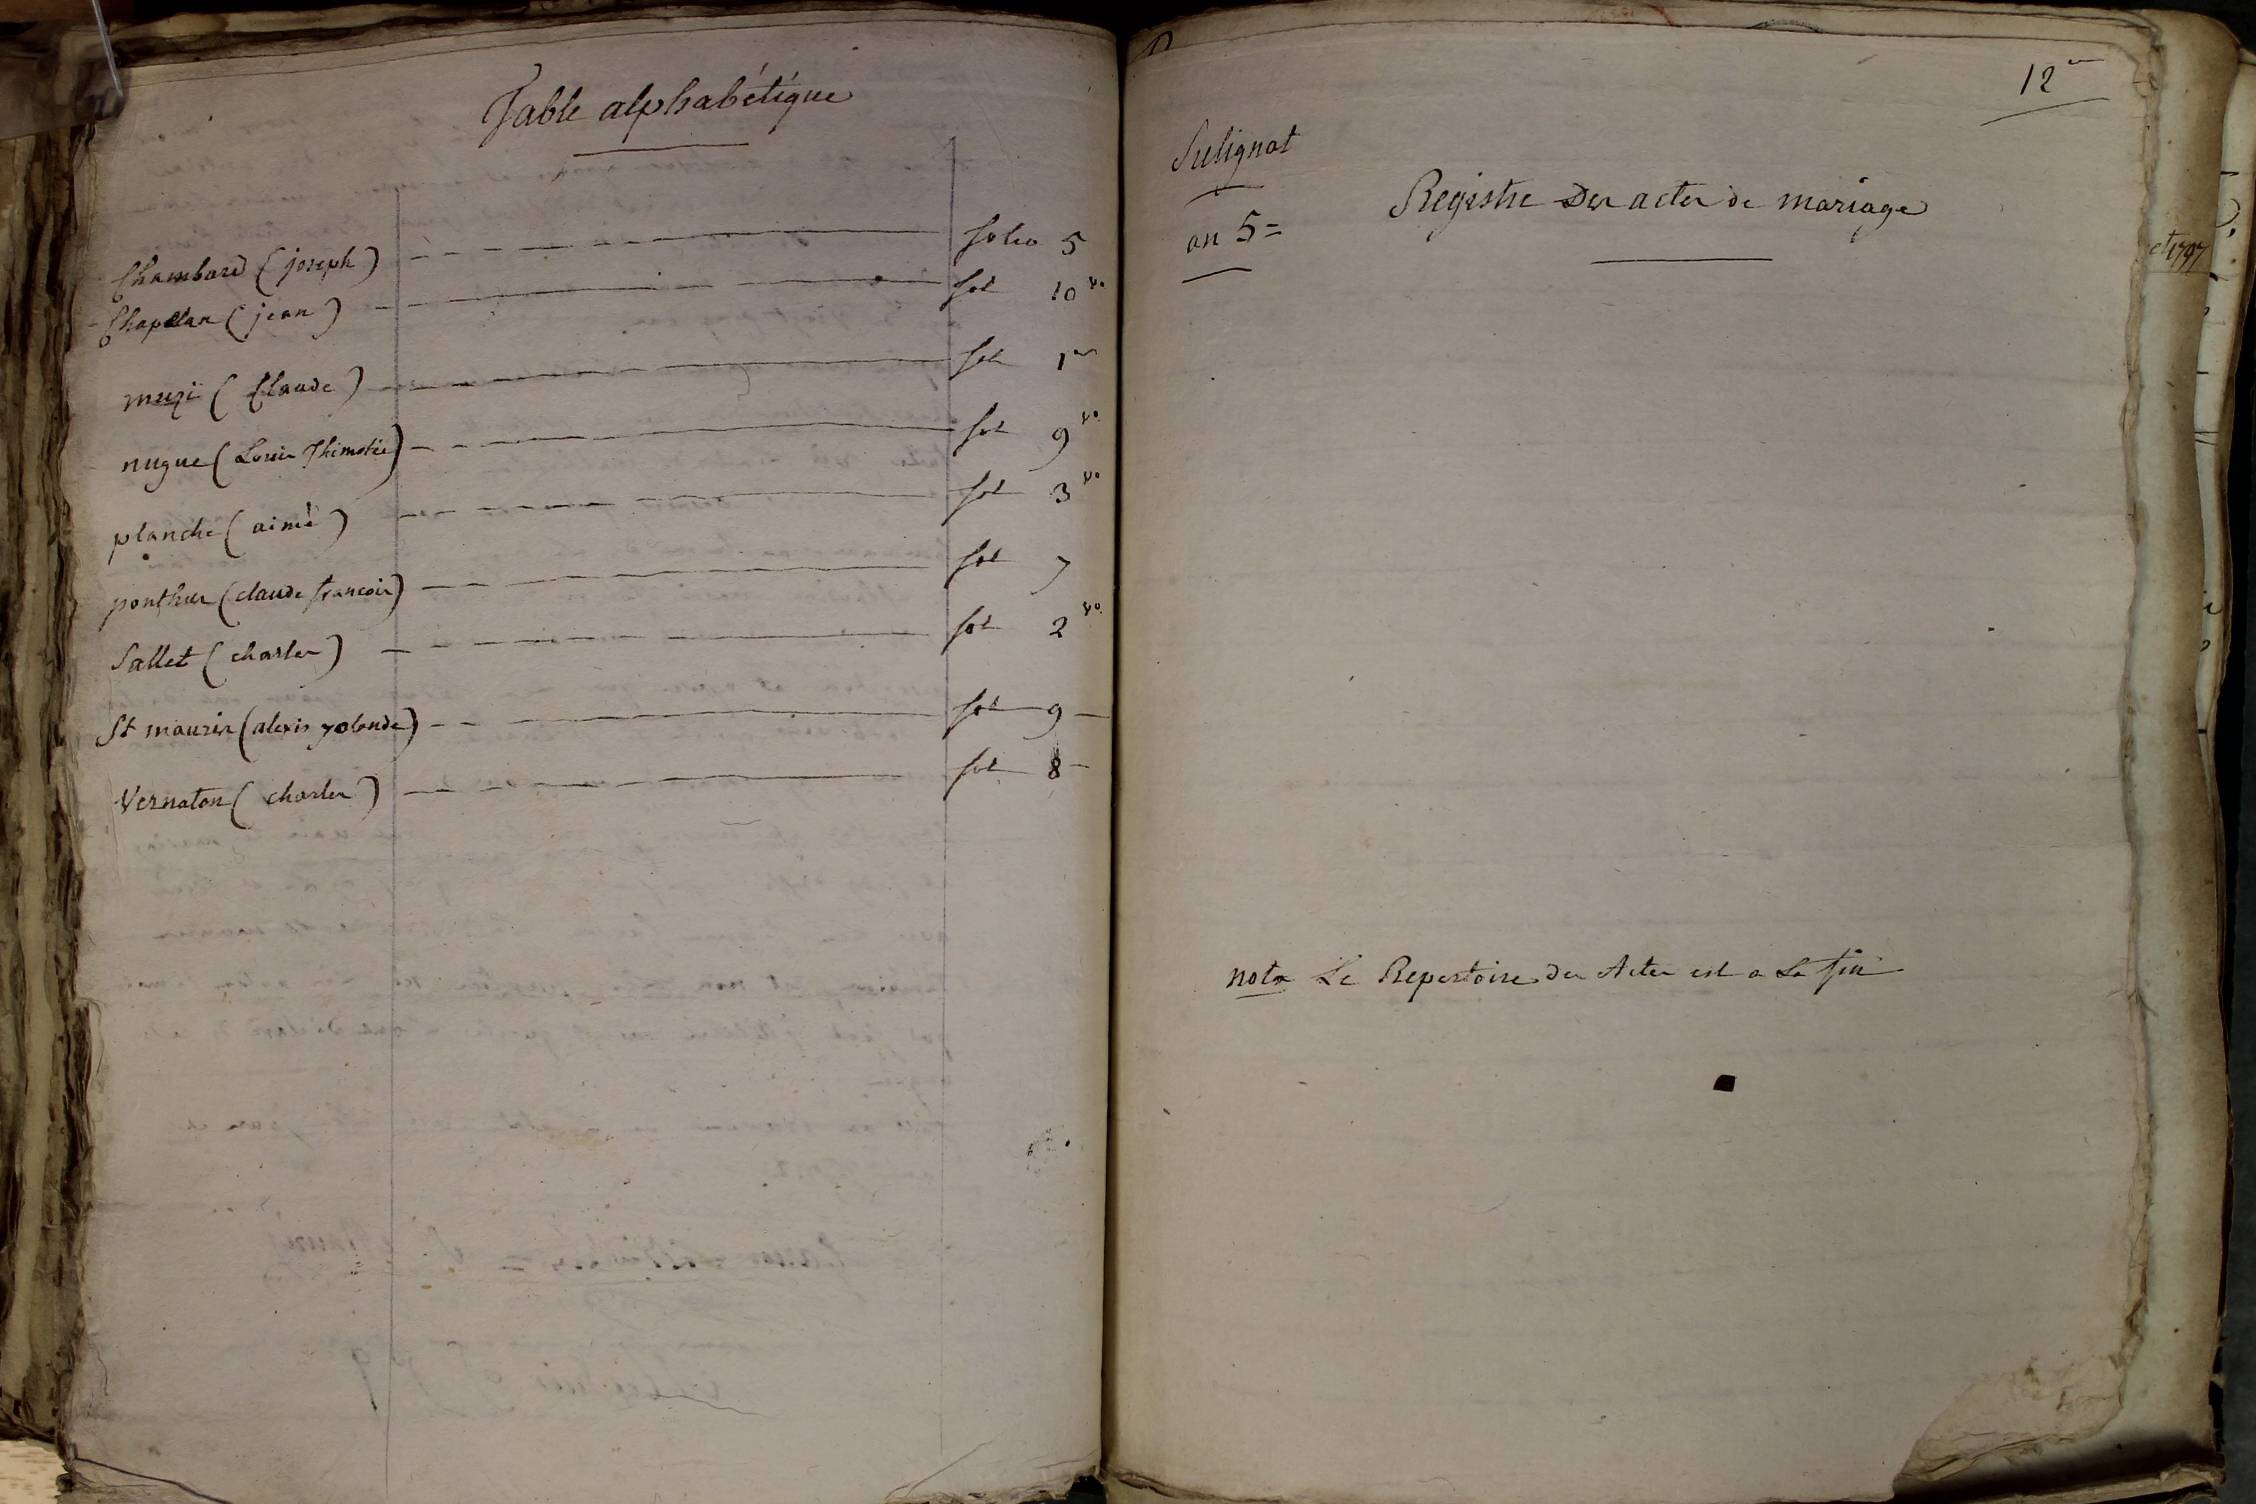 Table alphabétique
Chambard (joseph) folio 5
Chapelan (jean) fol 10 vo
muzi (Claude) fol 1er
nugue (Louis Thimotée) fol 9 vo
planche (aimé) fol 3 vo
ponthus (claude francois) fol 7
Sallet (charles) fol 2 vo
St mauris (alexis yolande) fol 9
Vernaton (charles) fol 8
12
Sulignat
an 5=
Registre Des actes de mariage
nota Le Repertoire des Actes est a La fin